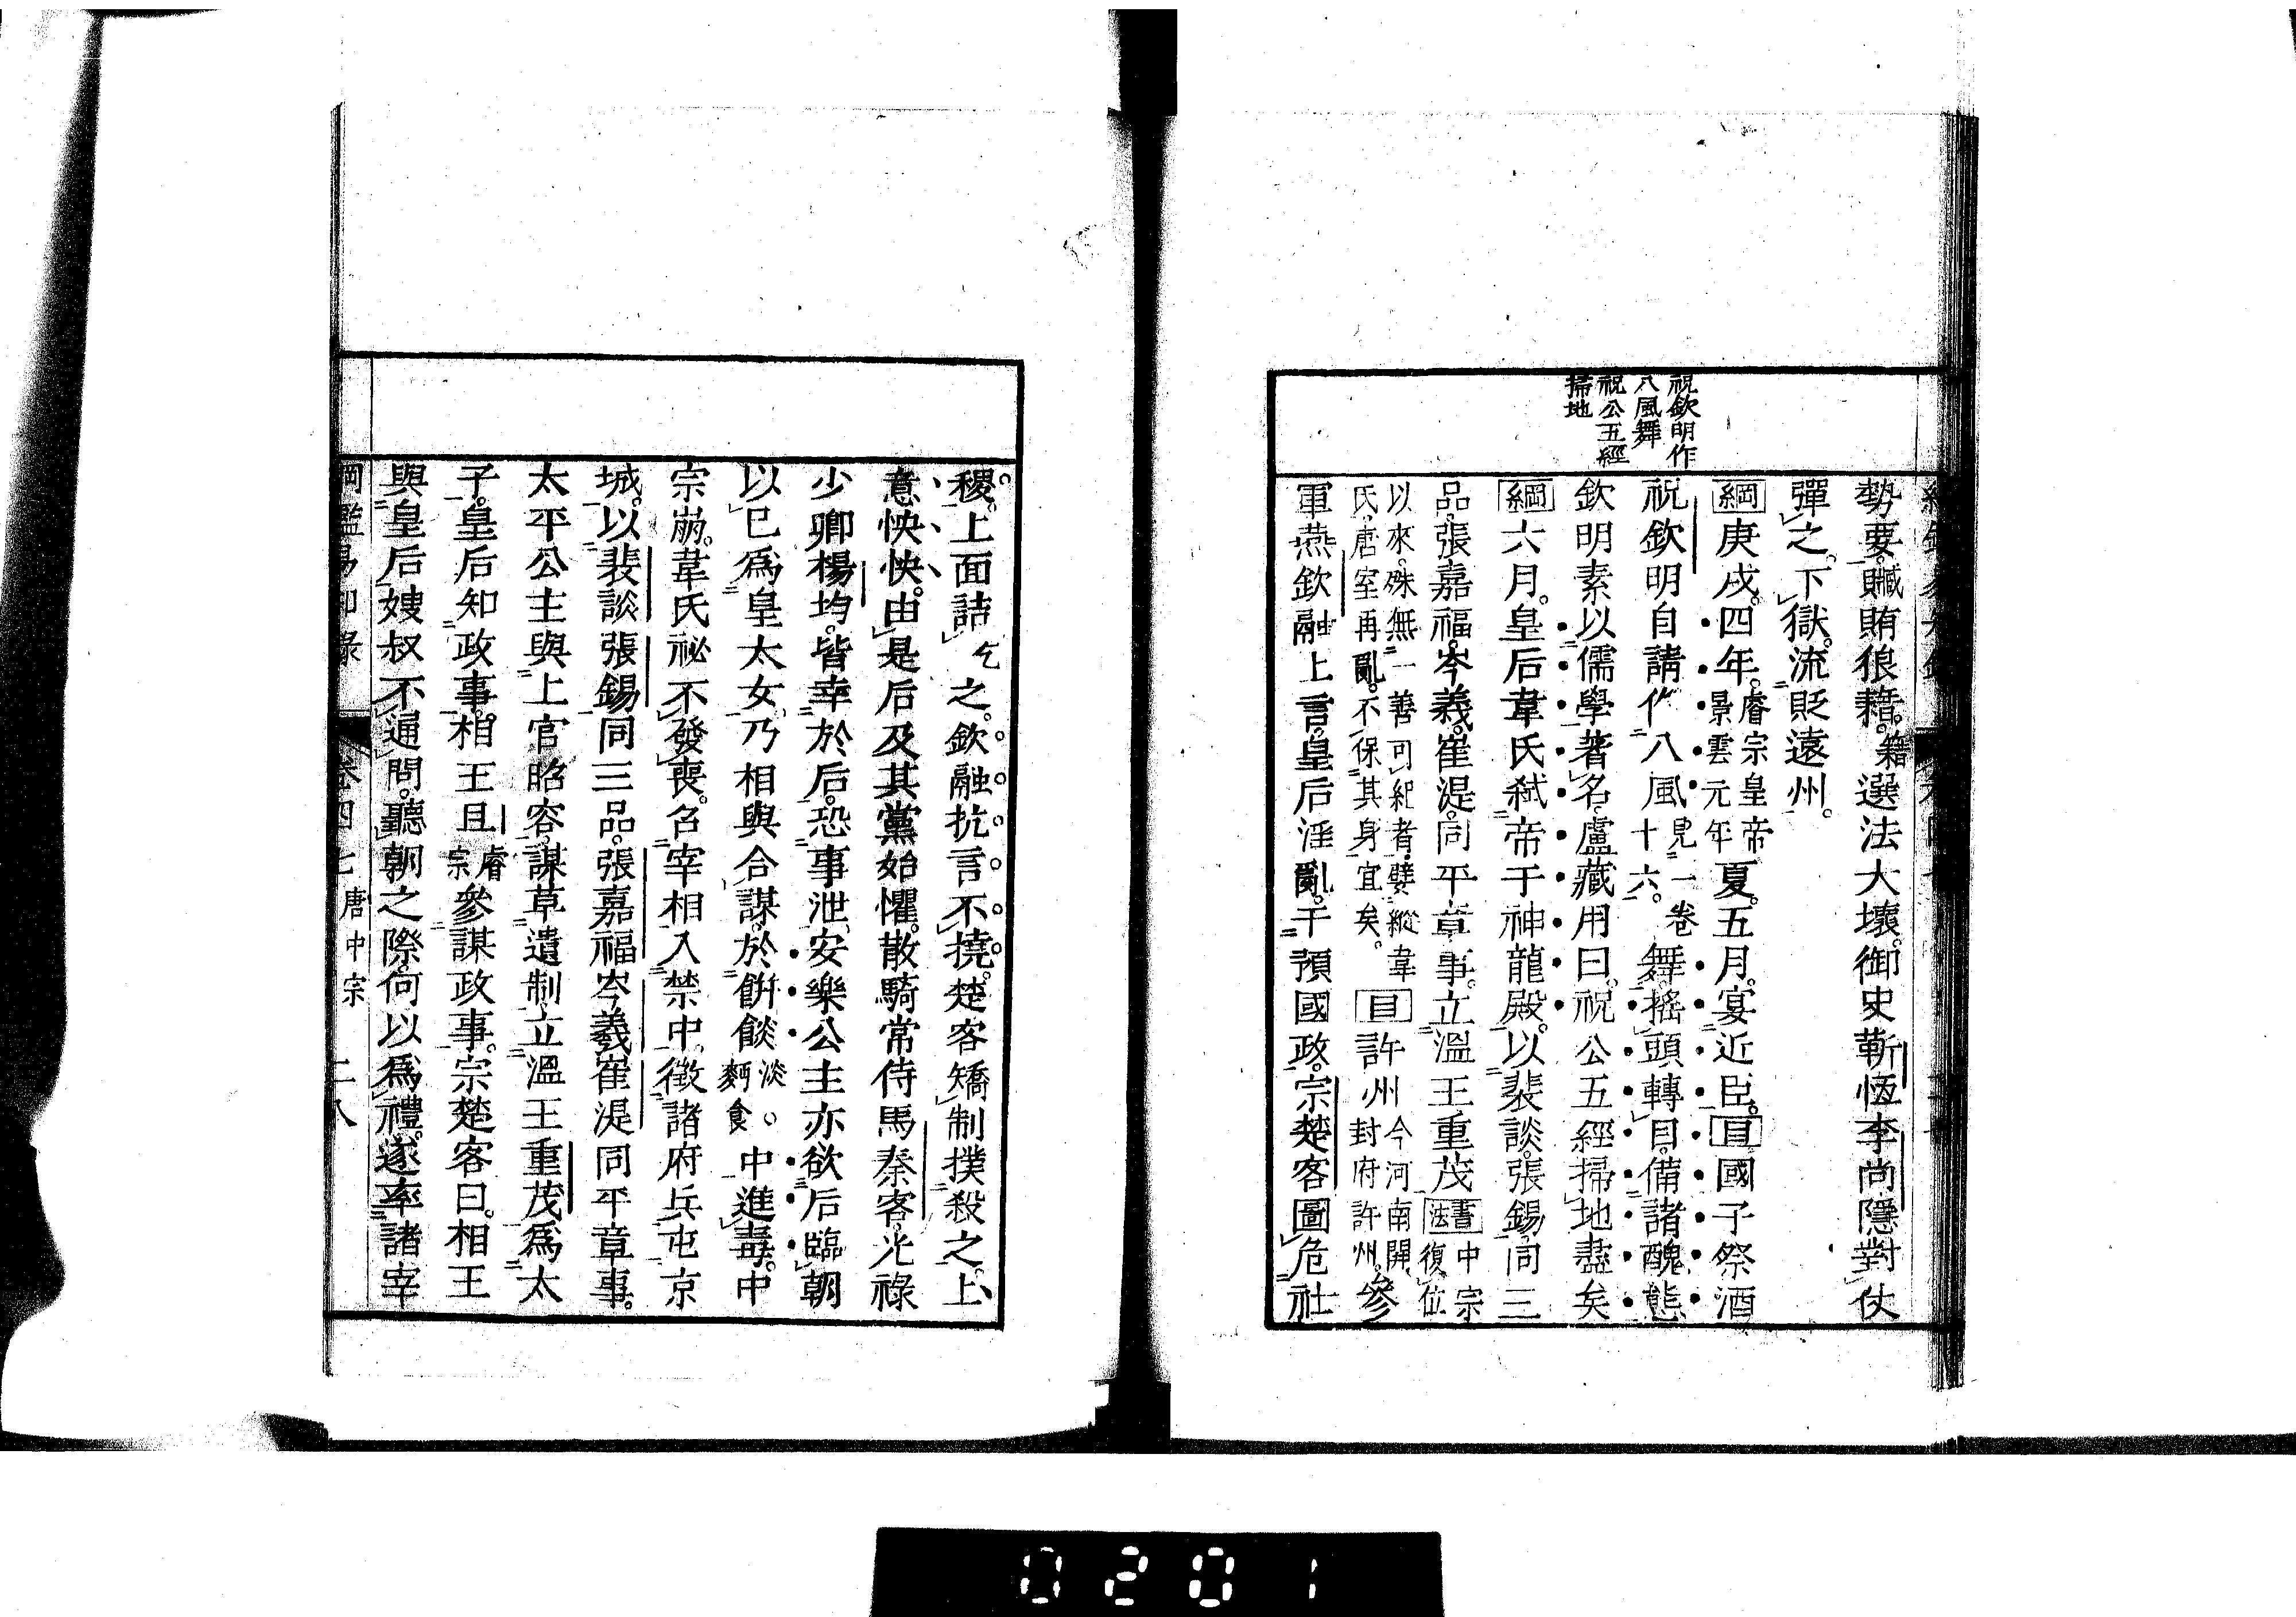 祝欽明作
八風舞
祝公五經
掃地
勢要。贓賄狼藉。籍選法大壞。御史靳恆李尚隱對仗
彈之。下獄。流貶遠州。
綱庚戌。四年。睿宗皇帝景雲元年夏。五月。宴近臣。目國子祭酒
祝欽明自請作八風見一卷十六。舞。搖頭轉目。備諸醜態
欽明素以儒學著名。盧藏用曰。祝公五經掃地盡矣
綱六月。皇后韋氏弒帝于神龍殿。以裴談。張錫。同三
品。張嘉福。岑羲。崔湜。同平章事。立溫王重茂書法中宗復位
以來。殊無一善可紀者。嬖縱韋氏。唐室再亂。不保其身宜矣。目許州今河南開封府許州。參
軍燕欽融上言。皇后淫亂。干預國政。宗楚客圖危社
稷。上面詰乞之。欽融抗言不撓。楚客矯制撲殺之。上
意怏怏。由是后及其黨始懼。散騎常侍馬秦客。光祿
少卿楊均。皆幸於后。恐事泄。安樂公主亦欲后臨朝
以己爲皇太女。乃相與合謀。於餠餤淡。麪食中進毒。中
宗崩。韋氏祕不發喪。召宰相入禁中。徵諸府兵屯京
城。以裴談張錫同三品。張嘉福岑羲崔湜同平章事。
太平公主與上官昭容。謀草遺制。立溫王重茂爲太
子。皇后知政事。相王旦睿宗參謀政事。宗楚客曰。相王
與皇后嫂叔不通問。聽朝之際。何以爲禮。遂率諸宰
綱鑑易知錄 卷四七 唐中宗 二八